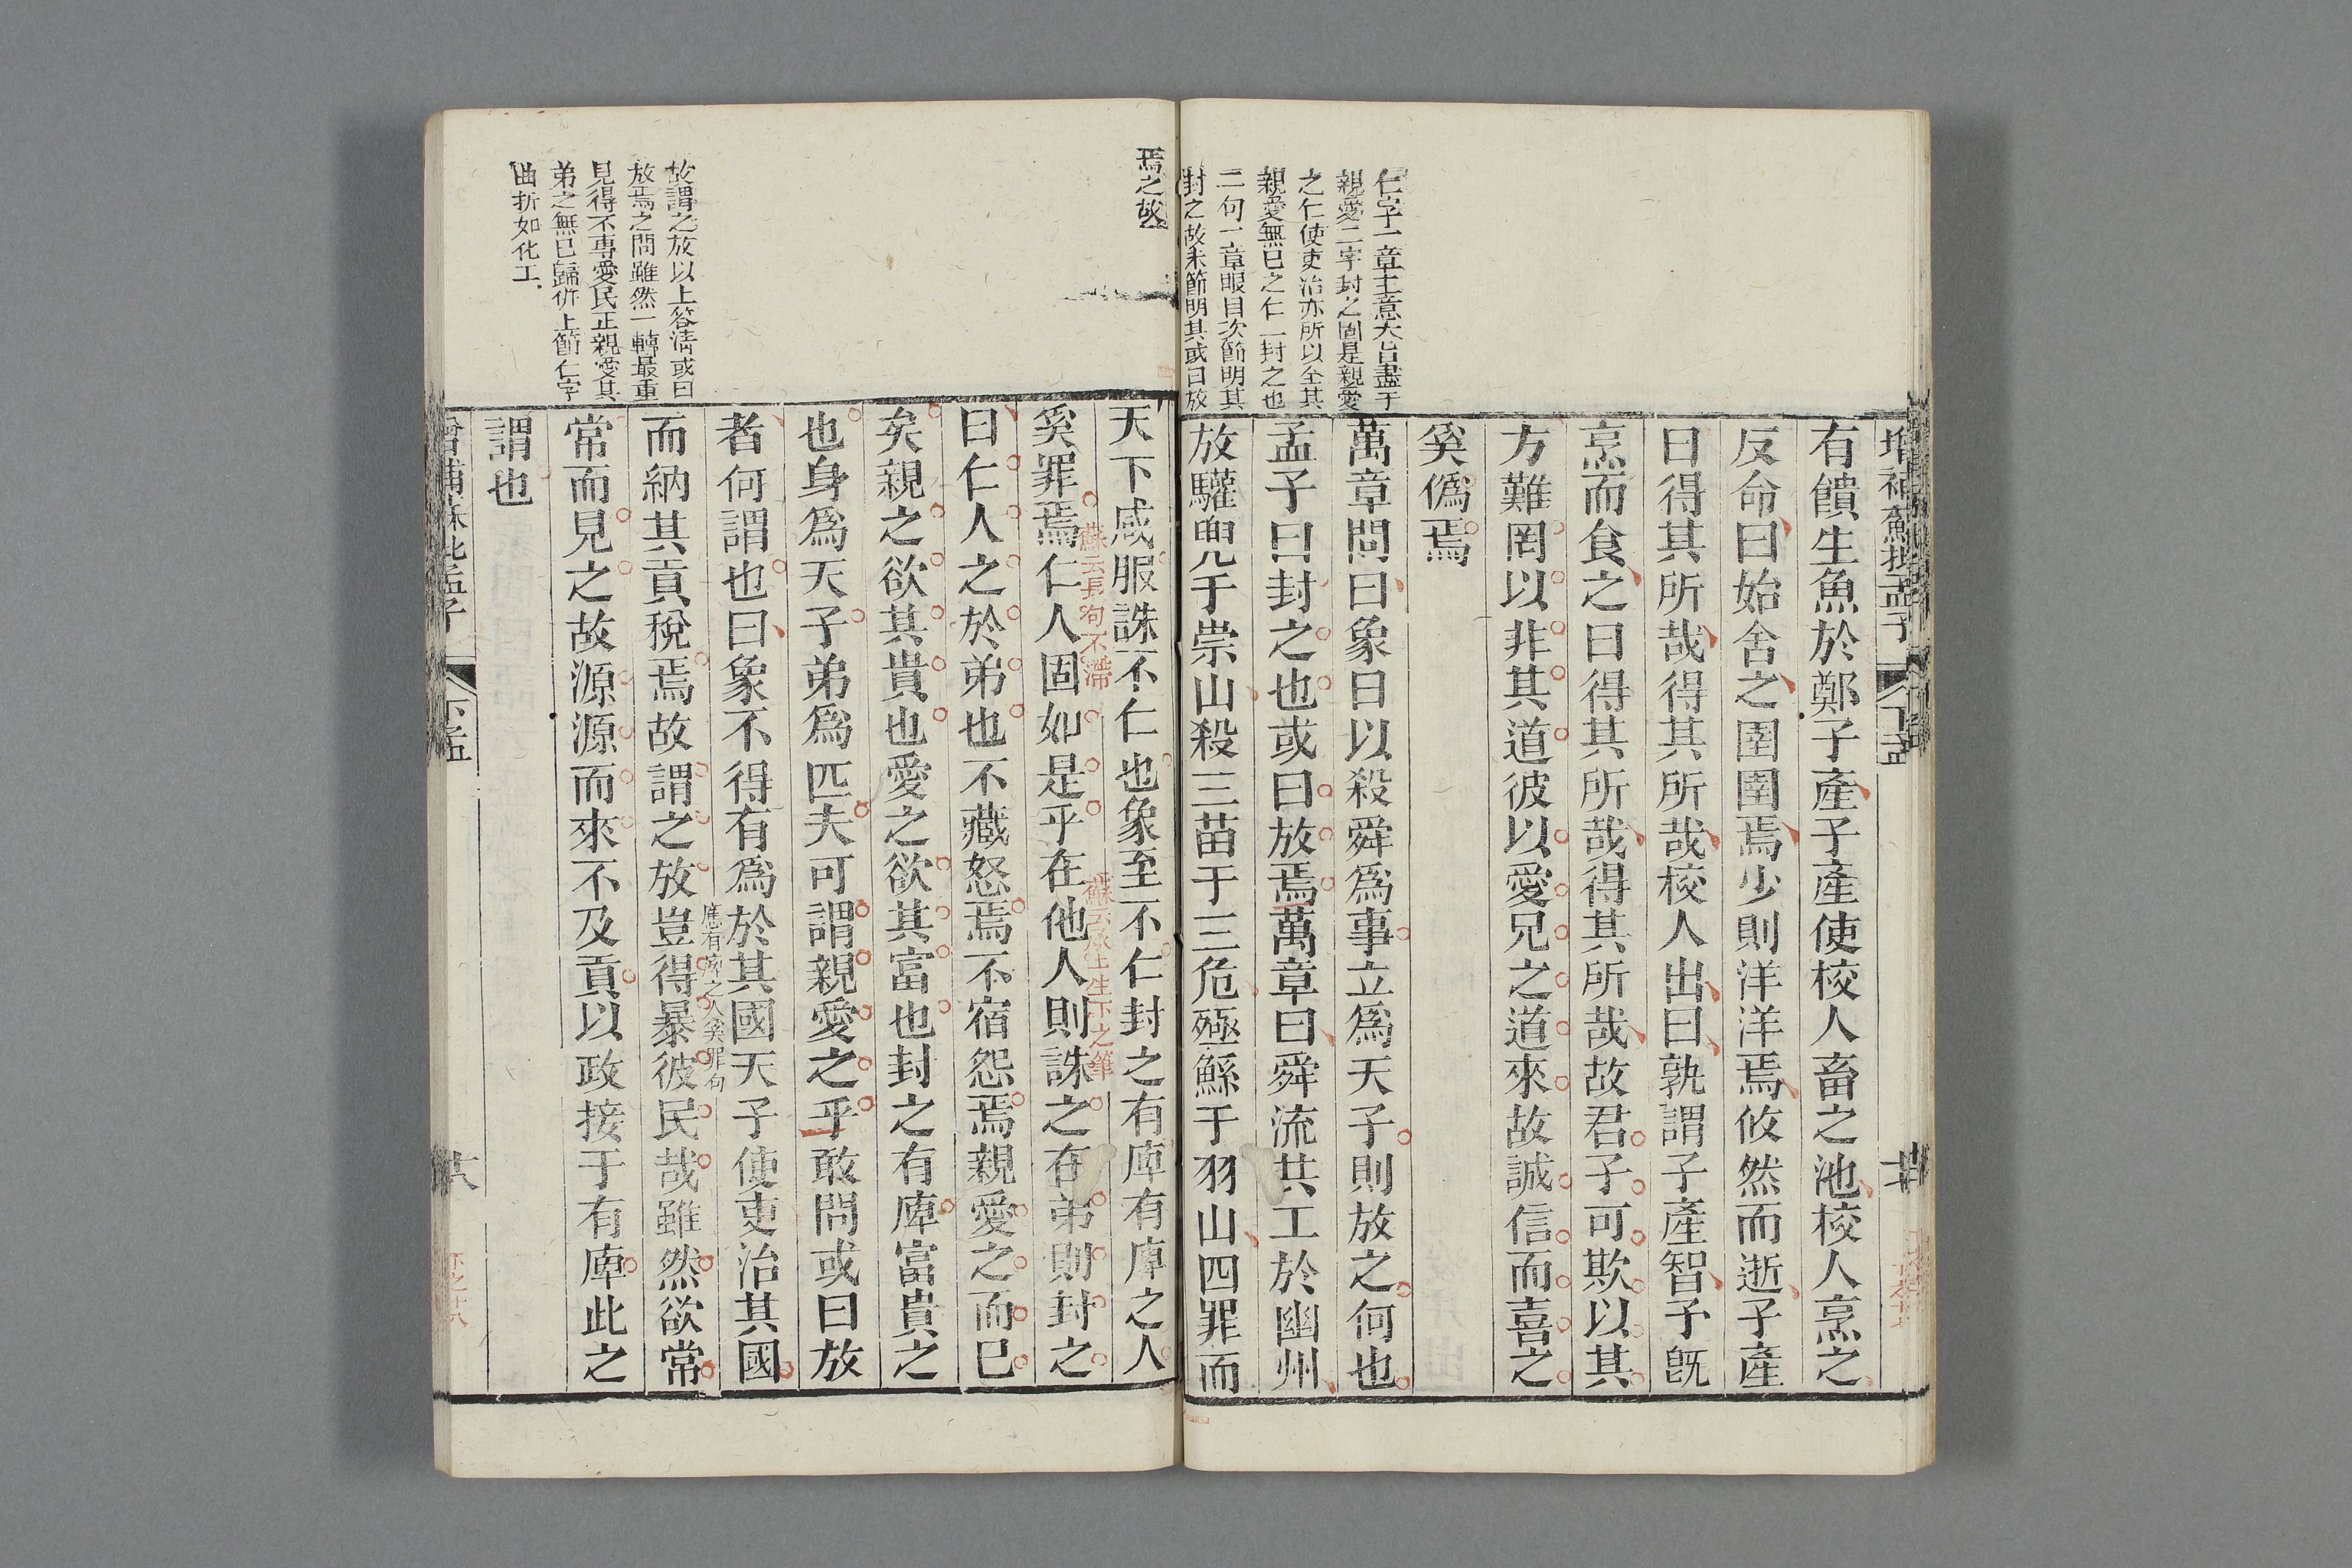 增補蘇批孟子
下孟
仁字一章主意大旨盡于
親愛二字封之固是親愛
之仁使吏治亦所以全其
親愛無已之仁一封之也
二句一章眼目次節明其
封之故末節明其或曰放
有饋生魚於鄭子產子產使校人畜之池校人烹之
反命曰始舍之圉圉焉少則洋洋焉攸然而逝子產
曰得其所哉得其所哉校人出曰孰謂子產智予既
烹而食之曰得其所哉得其所哉故君子可欺以其
方難罔以非其道彼以愛兄之道來故誠信而喜之
奚僞焉
萬章問曰象日以殺舜爲事立爲天子則放之何也
孟子曰封之也或曰放焉萬章曰舜流共工於幽州
放驩兜于崇山殺三苗于三危殛鯀于羽山四罪而
焉之故
故謂之放以上答清或曰
放焉之問雖然一轉最重
見得不專愛民正親愛其
弟之無已歸併上節仁字
曲折如化工
天下咸服誅不仁也象至不仁封之有庳有庳之人
蘇云長句不滯
蘇云承上生下之筆
奚罪焉仁人固如是乎在他人則誅之在弟則封之
曰仁人之於弟也不藏怒焉不宿怨焉親愛之而已
矣親之欲其貴也愛之欲其富也封之有庳富貴之
也身爲天子弟爲匹夫可謂親愛之乎敢問或曰放
者何謂也曰象不得有爲於其國天子使吏治其國
應有庳之人奚罪句
而納其貢稅焉故謂之放豈得暴彼民哉雖然欲常
常而見之故源源而來不及貢以政接于有庳此之
謂也
增補蘇批孟子
下孟